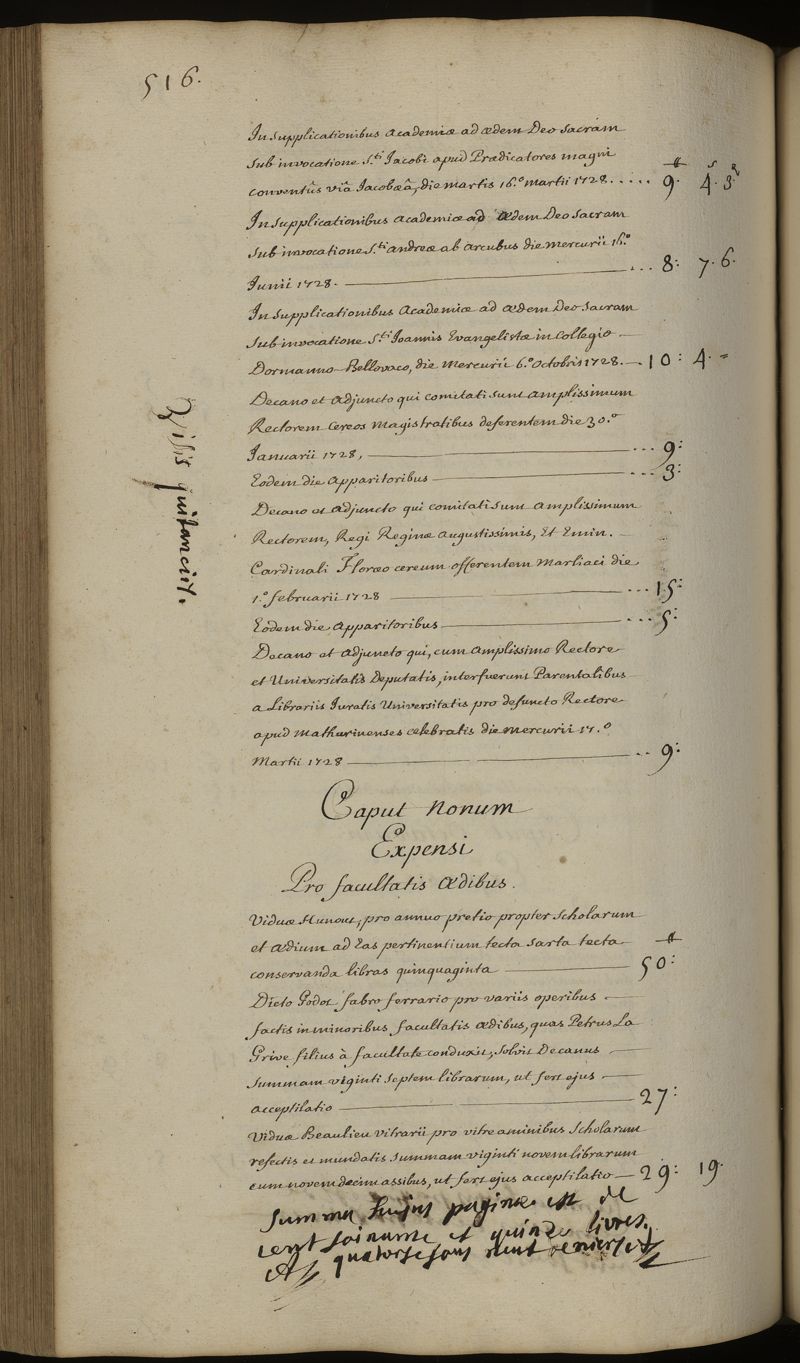 516.
In Supplicationibus Academiæ ad ædem Deo Sacram
Sub invocatione S.ti Jacobi apud Prædicatores magni
Conventûs viâ Jacobæâ, die martis 16.º Martii 1728. ..... 9. 4. 3
In Supplicationibus Academiæ ad Ædem Deo Sacram
Sub invocatione S.ti Andreæ ab Arcubus die mercurii 16.º
Junii 1728. ... 8: 7. 6.
In Supplicationibus Academiæ ad ædem Deo Sacram
Sub invocatione S.ti Joannis Evangelistæ in Collegio
Dormanno-Bellovaco, die Mercurii 6.º Octobris 1728. 10: 4. -
Decano et Adjuncto qui comitati sunt amplissimum
Rectorem Cereos Magistratibus deferentem die 30.º
Januarii 1728, ... 9:
Eodem die Apparitoribus ... 3:
Decano et Adjuncto qui comitati sunt Amplissimum
Rectorem, Regi Reginæ Augustissimis, Et Emin.
Cardinali Floræo cereum offerentem Marliaci die
1.º februarii 1728 ... 15:
Eodem die Apparitoribus ... 5:
Decano et Adjuncto qui, cum Amplissimo Rectore
et Universitatis Deputatis, interfuerunt Parentalibus
a Librariis Juratis Universitatis pro defuncto Rectore
apud Mathurinenses celebratis die Mercurii 17.º
Martii 1728 .. 9:
Visis quitanciis.
Caput nonum
Expensi
Pro facultatis Ædibus.
Viduæ Hunout, pro annuo pretio propter Scholarum
et Ædium ad Eas pertinentium tecta sarta tecta
conservanda libras quinquaginta 50:
Dicto Godot fabro ferrario pro variis operibus
factis in minoribus facultatis ædibus, quas Petrus La
Grive filius à facultate conduxit, solvit Decanus
Summam viginti Septem librarum, ut fert ejus
acceptilatio 27:
Viduæ Beaulieu vitrarii pro vitreaminibus Scholarum
refectis et mundatis Summam viginti novem librarum
cum novemdecim assibus, ut fert ejus acceptilatio 29: 19.
Summa hujus paginæ est de
cent soixante et quinze livres,
quatorse sous neuf deniers